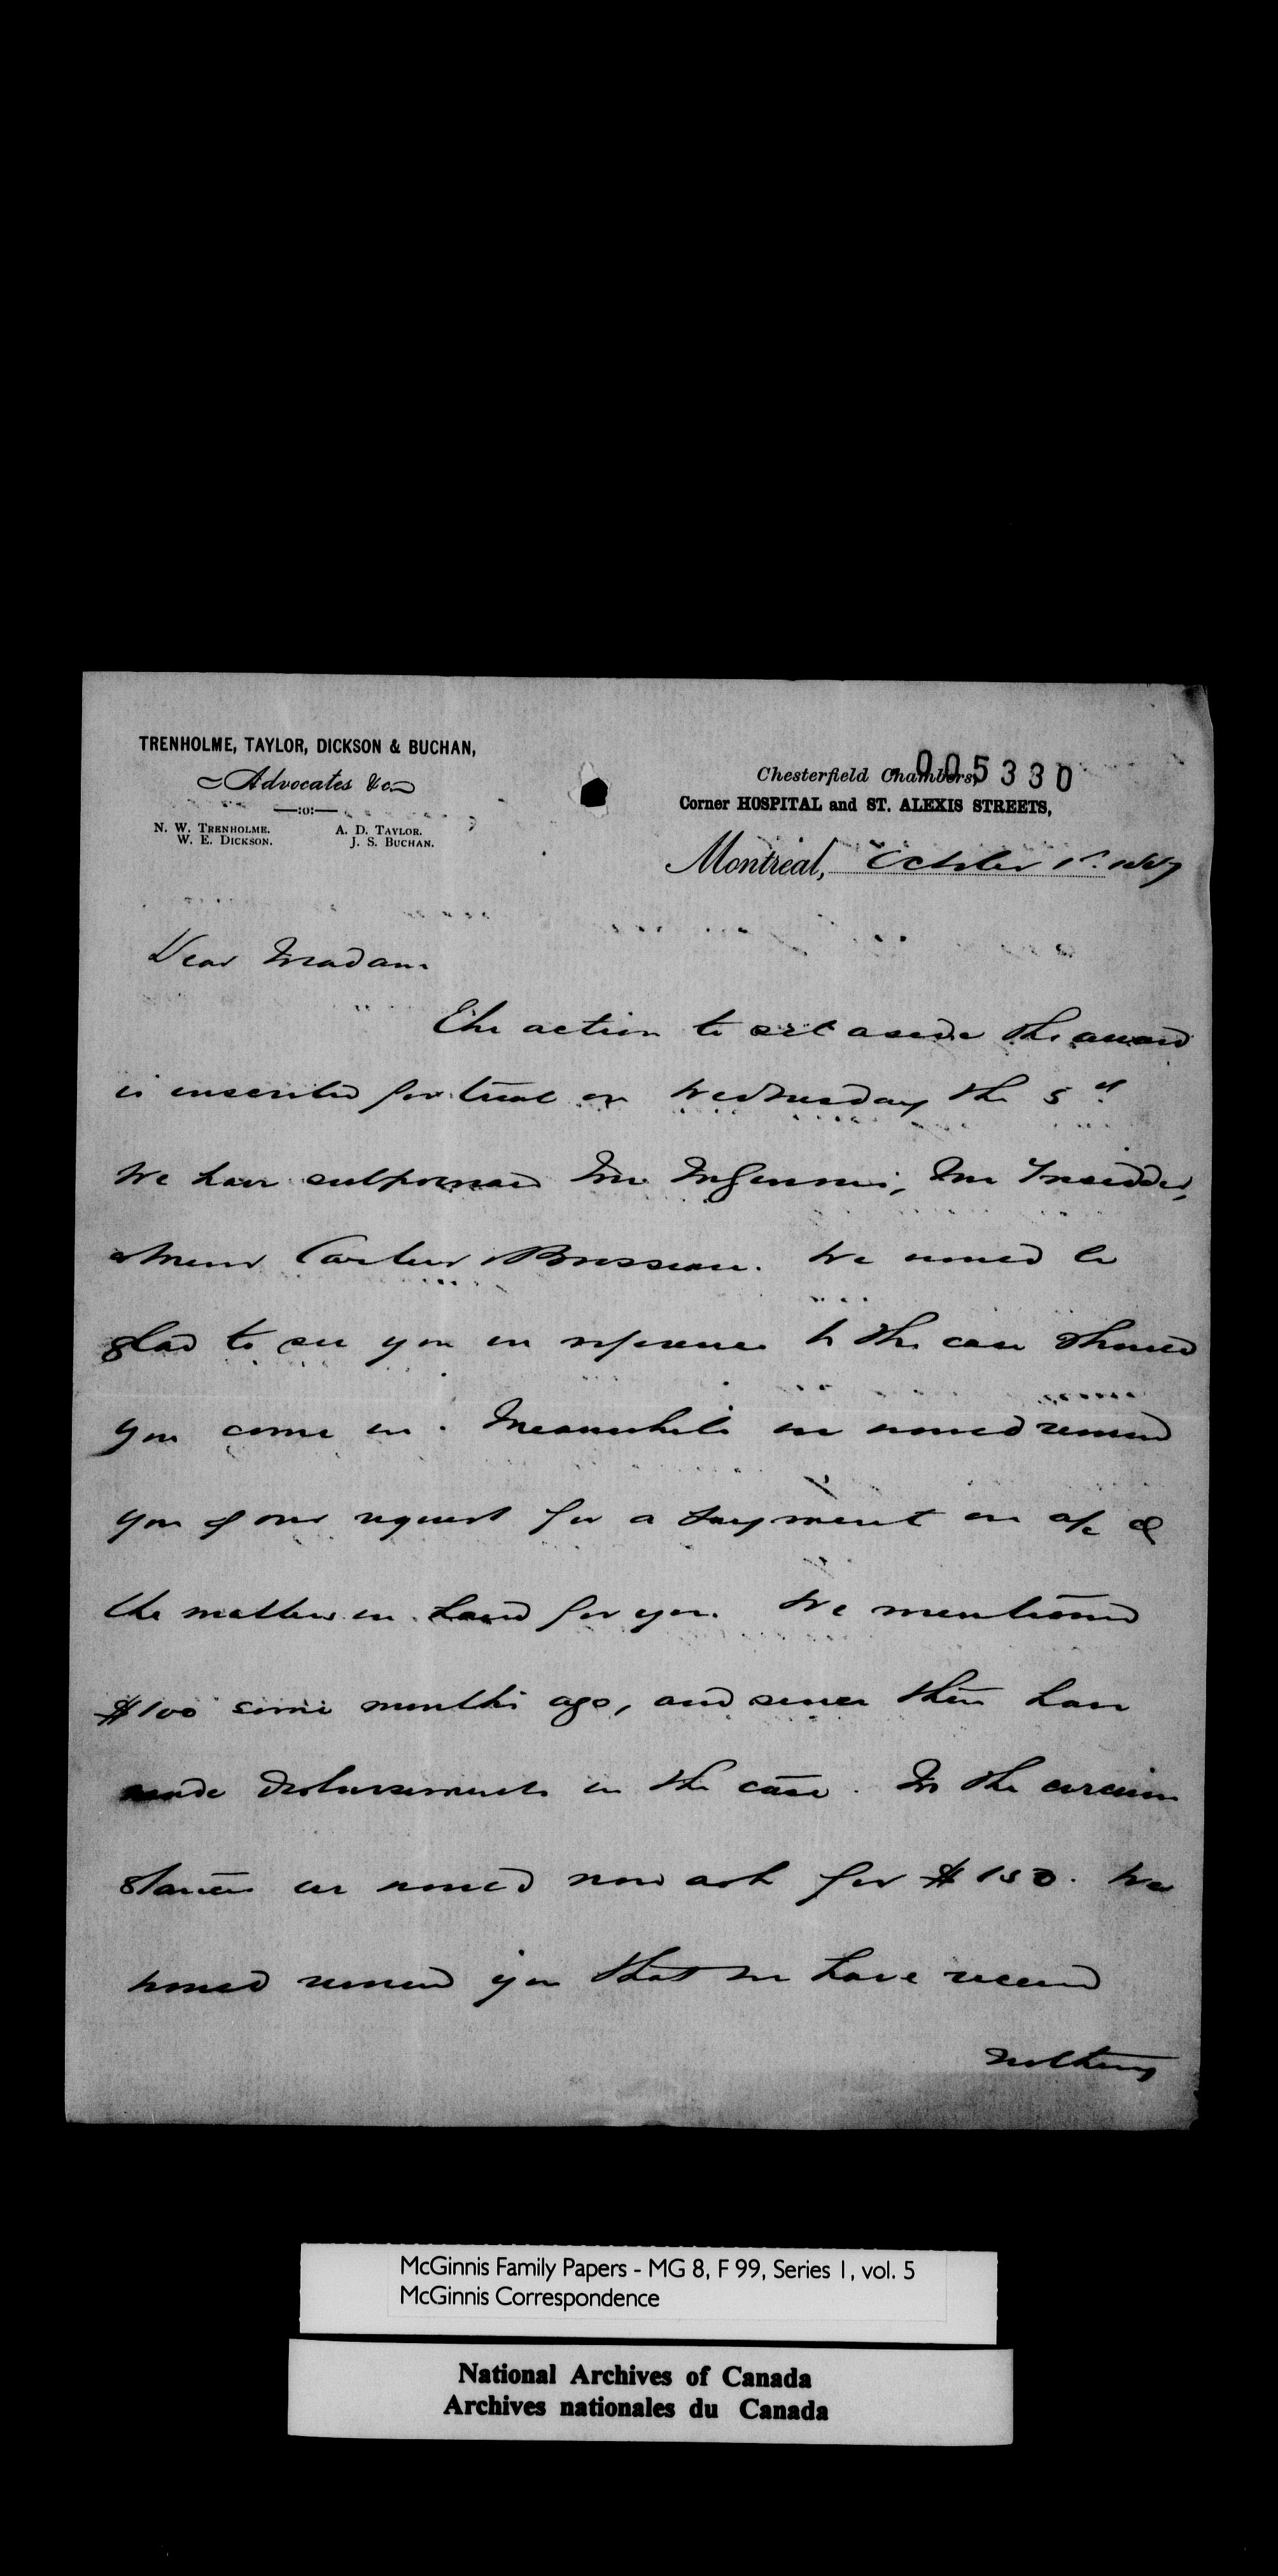 TRENHOLME, TAYLOR, DICKSON & BUCHAN,
Advocates &c
—:o:—
N. W. TRENHOLME. A. D. TAYLOR.
W. E. DICKSON. J. S. BUCHAN.
005330
Chesterfield Chambers,
Corner HOSPITAL and ST. ALEXIS STREETS,
Montreal, October 1st. 1887
Dear Madam
The action to set aside the award
is inscribed for trial on Wednesday the 5th.
We have subpoenaed Mr McGinnis, Mr
Brosseau. We would be
glad to see you in reference to the case should
you come in. Meanwhile we would remind
you of our request for a payment on a/c of
the matters in hand for you. We mentioned
$100 some months ago, and since then have
made disbursements in the case. In the circum
stances we would now ask for $150. We
would remind you that we have received
nothing
McGinnis Family Papers - MG 8, F 99, Series 1, vol. 5
McGinnis Correspondence
National Archives of Canada
Archives nationales du Canada